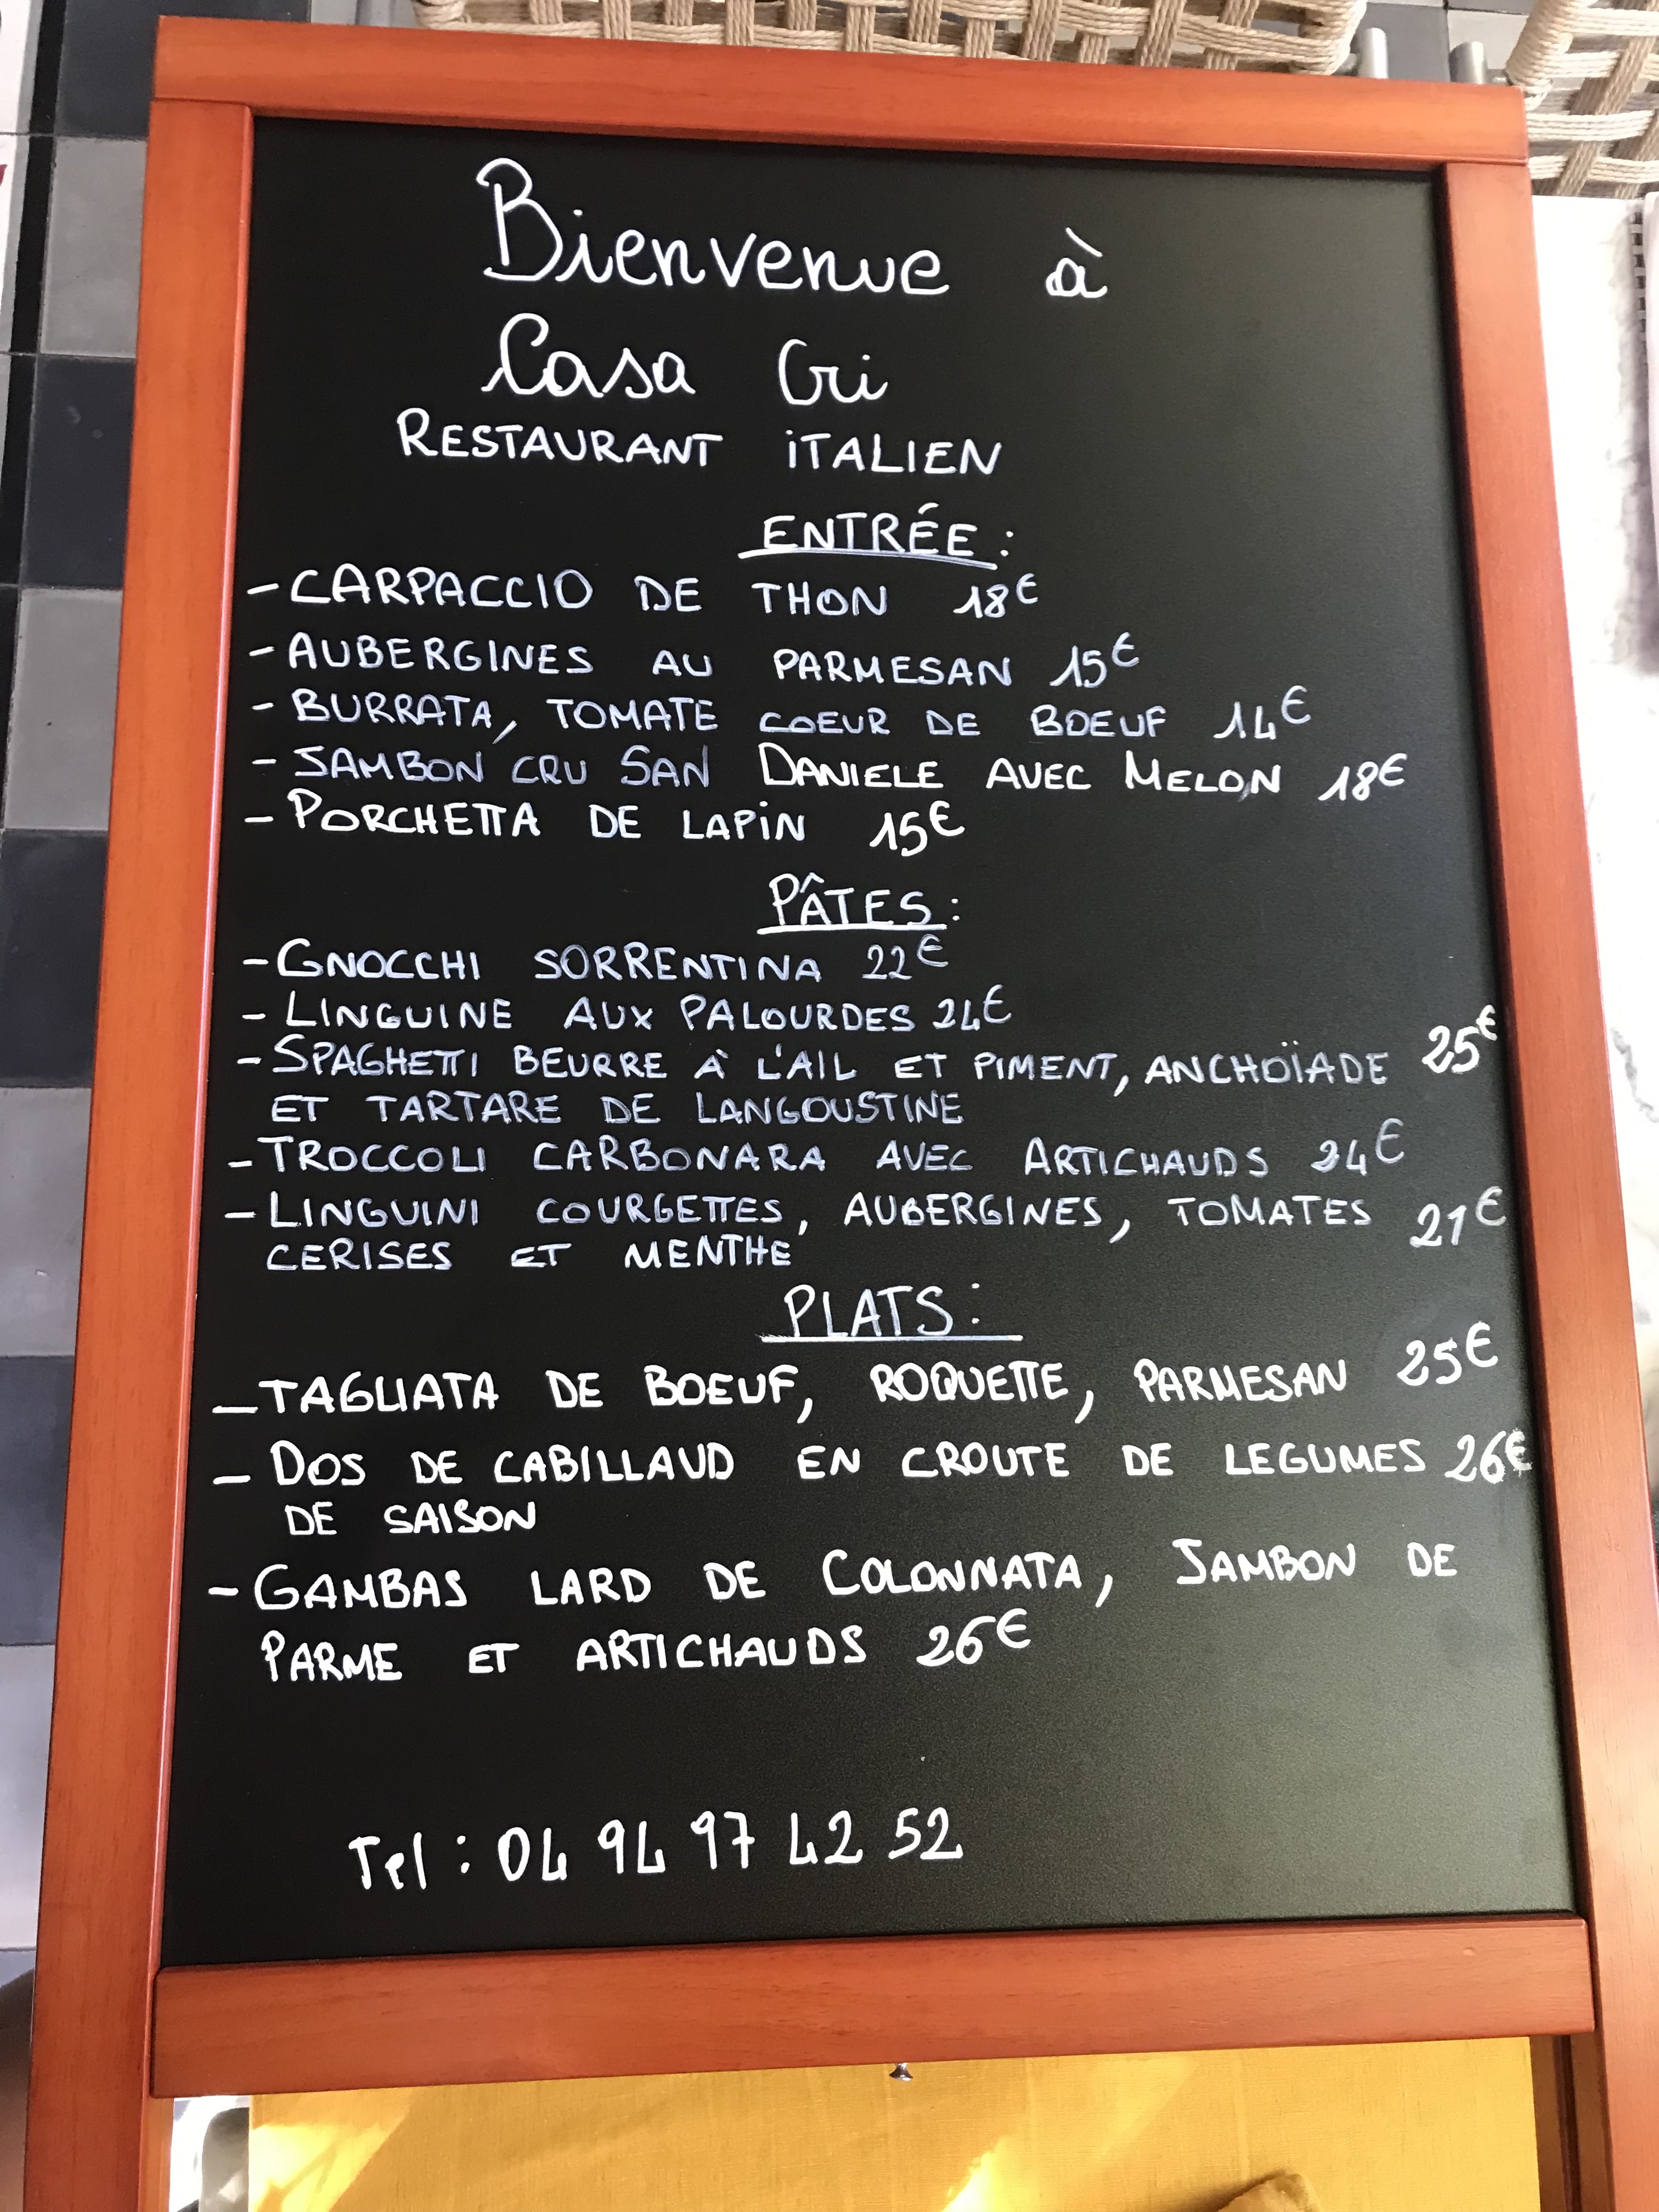 Bienvenue à
Casa Cri
RESTAURANT iTALIEN
ENTRÉE :
- CARPACCIO DE THON 18€
- AUBERGINES AU PARMESAN 15€
- BURRATA, TOMATE COEUR DE BOEUF 14€
- JAMBON CRU SAN DANIELE AVEC MELON 18€
- PORCHETTA DE LAPiN 15€
PÂTES :
- GNOCCHI SORRENTINA 22€
- LINGUINE AUX PALOURDES 24€
- SPAGHETTI BEURRE À L'AIL ET PIMENT, ANCHOÏADE 25€
ET TARTARE DE LANGOUSTINE
- TROCCOLI CARBONARA AVEC ARTICHAUDS 24€
- LINGUINI COURGETTES, AUBERGINES, TOMATES 21€
CERISES ET MENTHE
PLATS :
- TAGLIATA DE BOEUF, ROQUETTE, PARMESAN 25€
- DOS DE CABILLAUD EN CROUTE DE LEGUMES 26€
DE SAISON
- GAMBAS LARD DE COLONNATA, JAMBON DE
PARME ET ARTICHAUDS 26€
Tel : 04 94 97 42 52